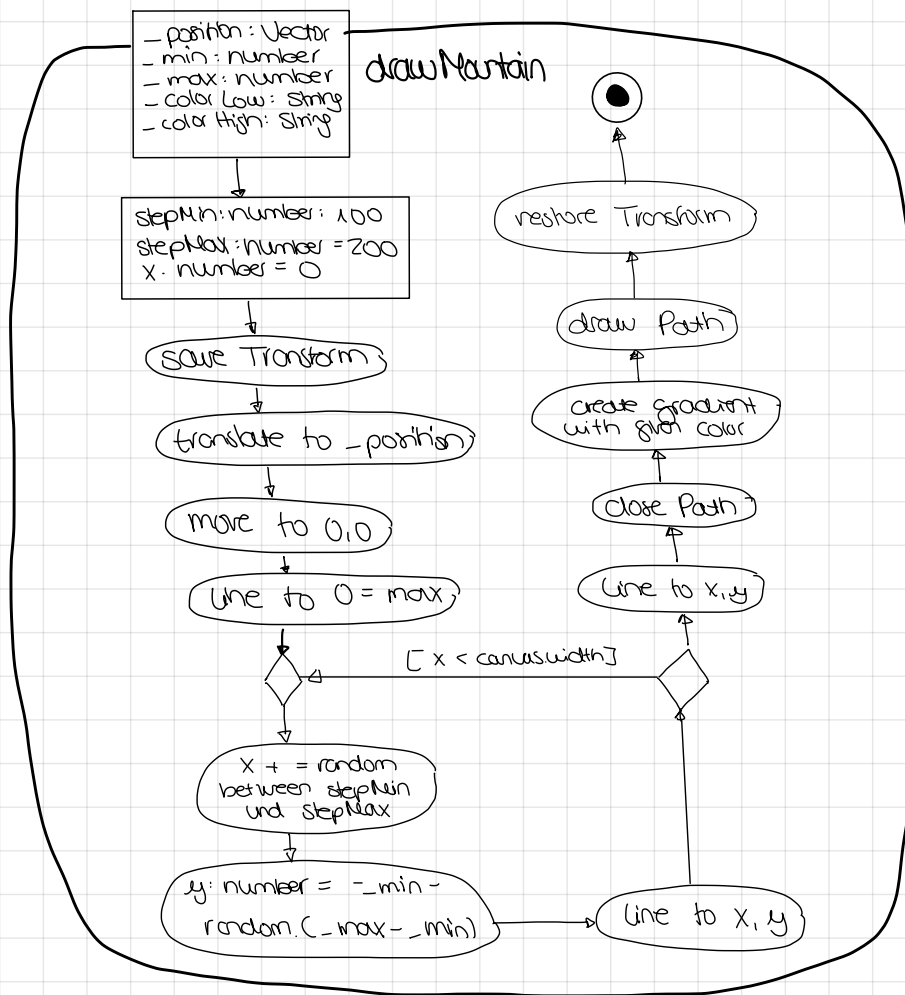 _ position : Vector
_ min : number
_ max : number
_ color Low : String
_ color High : String
drawMountain
stepMin: number: 100
stepMax: number = 200
x: number = 0
save Transform
translate to _position
move to 0,0
line to 0 = max
[ x < canvas.width]
x + = random
between stepMin
und stepMax
y: number = -_min -
random.(_max - _min)
line to x, y
line to x,y
close Path
create gradient
with given color
draw Path
restore Transform